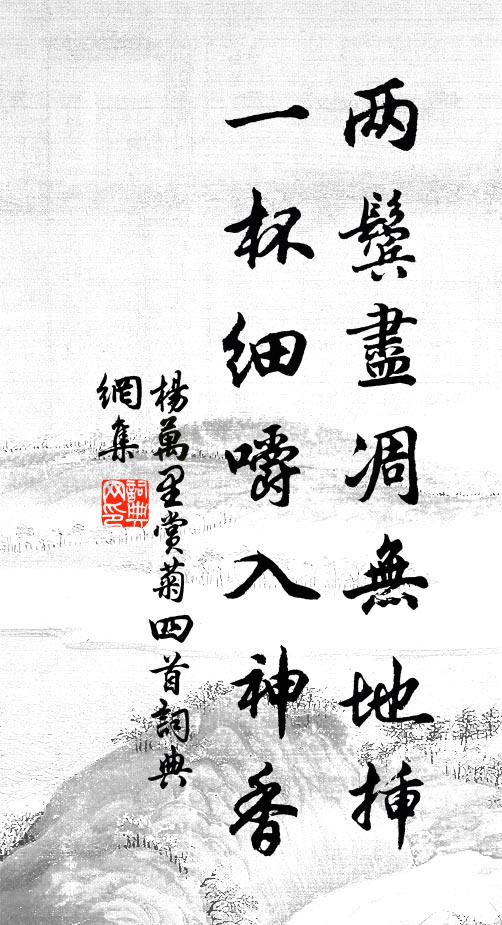 两鬓盡凋無地挿
一杯細嚼入神香
楊萬里賞菊四首詞典
網集
詞典
网印